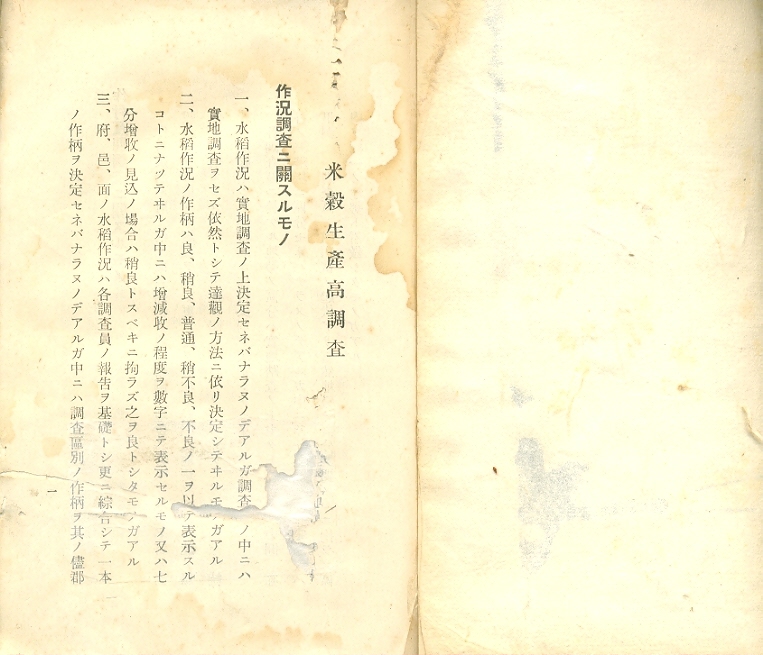 米穀生產高調查
作況調査ニ關スルモノ
一、水稻作況ハ實地調査ノ上決定セネバナラヌノデアルガ調査ノ中ニハ
實地調査ヲセズ依然トシテ達觀ノ方法ニ依リ決定シテヰルモノガアル
二、水稻作況ノ作柄ハ良、稍良、普通、稍不良、不良ノ一ヲ以テ表示スル
コトニナツテヰルガ中ニハ增減收ノ程度ヲ數字ニテ表示セルモノ又ハ七
分增收ノ見込ノ場合ハ稍良トスベキニ拘ラズ之ヲ良トシタモノガアル
三、府、邑、面ノ水稻作況ハ各調査員ノ報告ヲ基礎トシ更ニ綜合シテ一本
ノ作柄ヲ決定セネバナラヌノデアルガ中ニハ調査區別ノ作柄ヲ其ノ儘郡
一